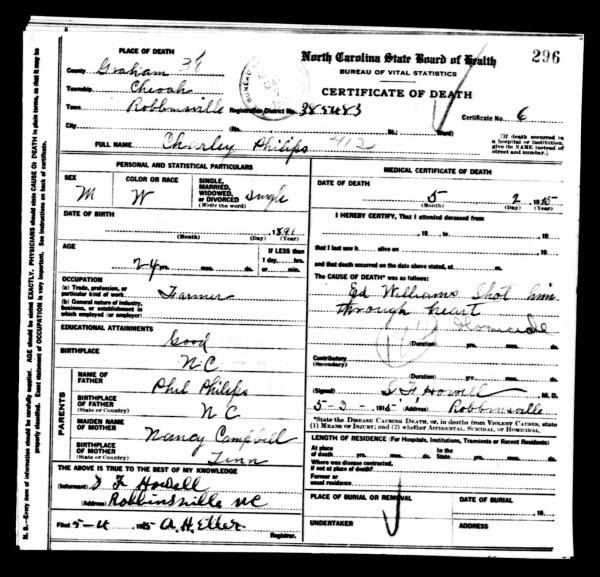 296
PLACE OF DEATH
County Graham 38
Township Cheoah
Town Robbinsville
City
North Carolina State Board of Health
BUREAU OF VITAL STATISTICS
CERTIFICATE OF DEATH
Registration District No.
Certificate No. 6
(No. St.; Ward)
[If death occurred in a hospital or institution, give its NAME instead of street and number.]
FULL NAME Charley Philips 412
PERSONAL AND STATISTICAL PARTICULARS
SEX M
COLOR OR RACE W
SINGLE, MARRIED, WIDOWED, OR DIVORCED (Write the word) Single
DATE OF BIRTH
1891
(Month) (Day) (Year)
AGE
24 yrs. mos. ds.
IF LESS than 1 day, hrs. or min.
OCCUPATION
(a) Trade, profession, or particular kind of work Farmer
(b) General nature of industry, business, or establishment in which employed (or employer)
EDUCATIONAL ATTAINMENTS
Good
BIRTHPLACE
NC
PARENTS
NAME OF FATHER Phil Philips
BIRTHPLACE OF FATHER (State or Country) NC
MAIDEN NAME OF MOTHER Nancy Campbell
BIRTHPLACE OF MOTHER (State or Country) Tinn
THE ABOVE IS TRUE TO THE BEST OF MY KNOWLEDGE
(Informant) S F Howell
(Address) Robbinsville NC
Filed 5-4 1915
Registrar.
MEDICAL CERTIFICATE OF DEATH
DATE OF DEATH
5 2 1915
(Month) (Day) (Year)
I HEREBY CERTIFY, That I attended deceased from
, 19 , to , 19
that I last saw h alive on , 19
and that death occurred on the date above stated, at m.
The CAUSE OF DEATH* was as follows:
Ed Williams Shot him
through heart
Homicide
(Duration) yrs. mos. ds.
Contributory
(Secondary)
(Duration) yrs. mos. ds.
(Signed) S. F. Howell M. D.
5-3- 1915 (Address) Robbinsville
*State the DISEASE CAUSING DEATH, or, in deaths from VIOLENT CAUSES, state
(1) MEANS OF INJURY; and (2) whether ACCIDENTAL, SUICIDAL, OR HOMICIDAL.
LENGTH OF RESIDENCE (For Hospitals, Institutions, Transients or Recent Residents)
At place of death yrs. mos. ds. In the State yrs. mos. ds.
Where was disease contracted, if not at place of death?
Former or usual residence
PLACE OF BURIAL OR REMOVAL
DATE OF BURIAL
, 19
UNDERTAKER
ADDRESS
N. B.—Every item of information should be carefully supplied. AGE should be stated EXACTLY. PHYSICIANS should state CAUSE OF DEATH in plain terms, so that it may be
properly classified. Exact statement of OCCUPATION is very important. See instructions on back of certificate.